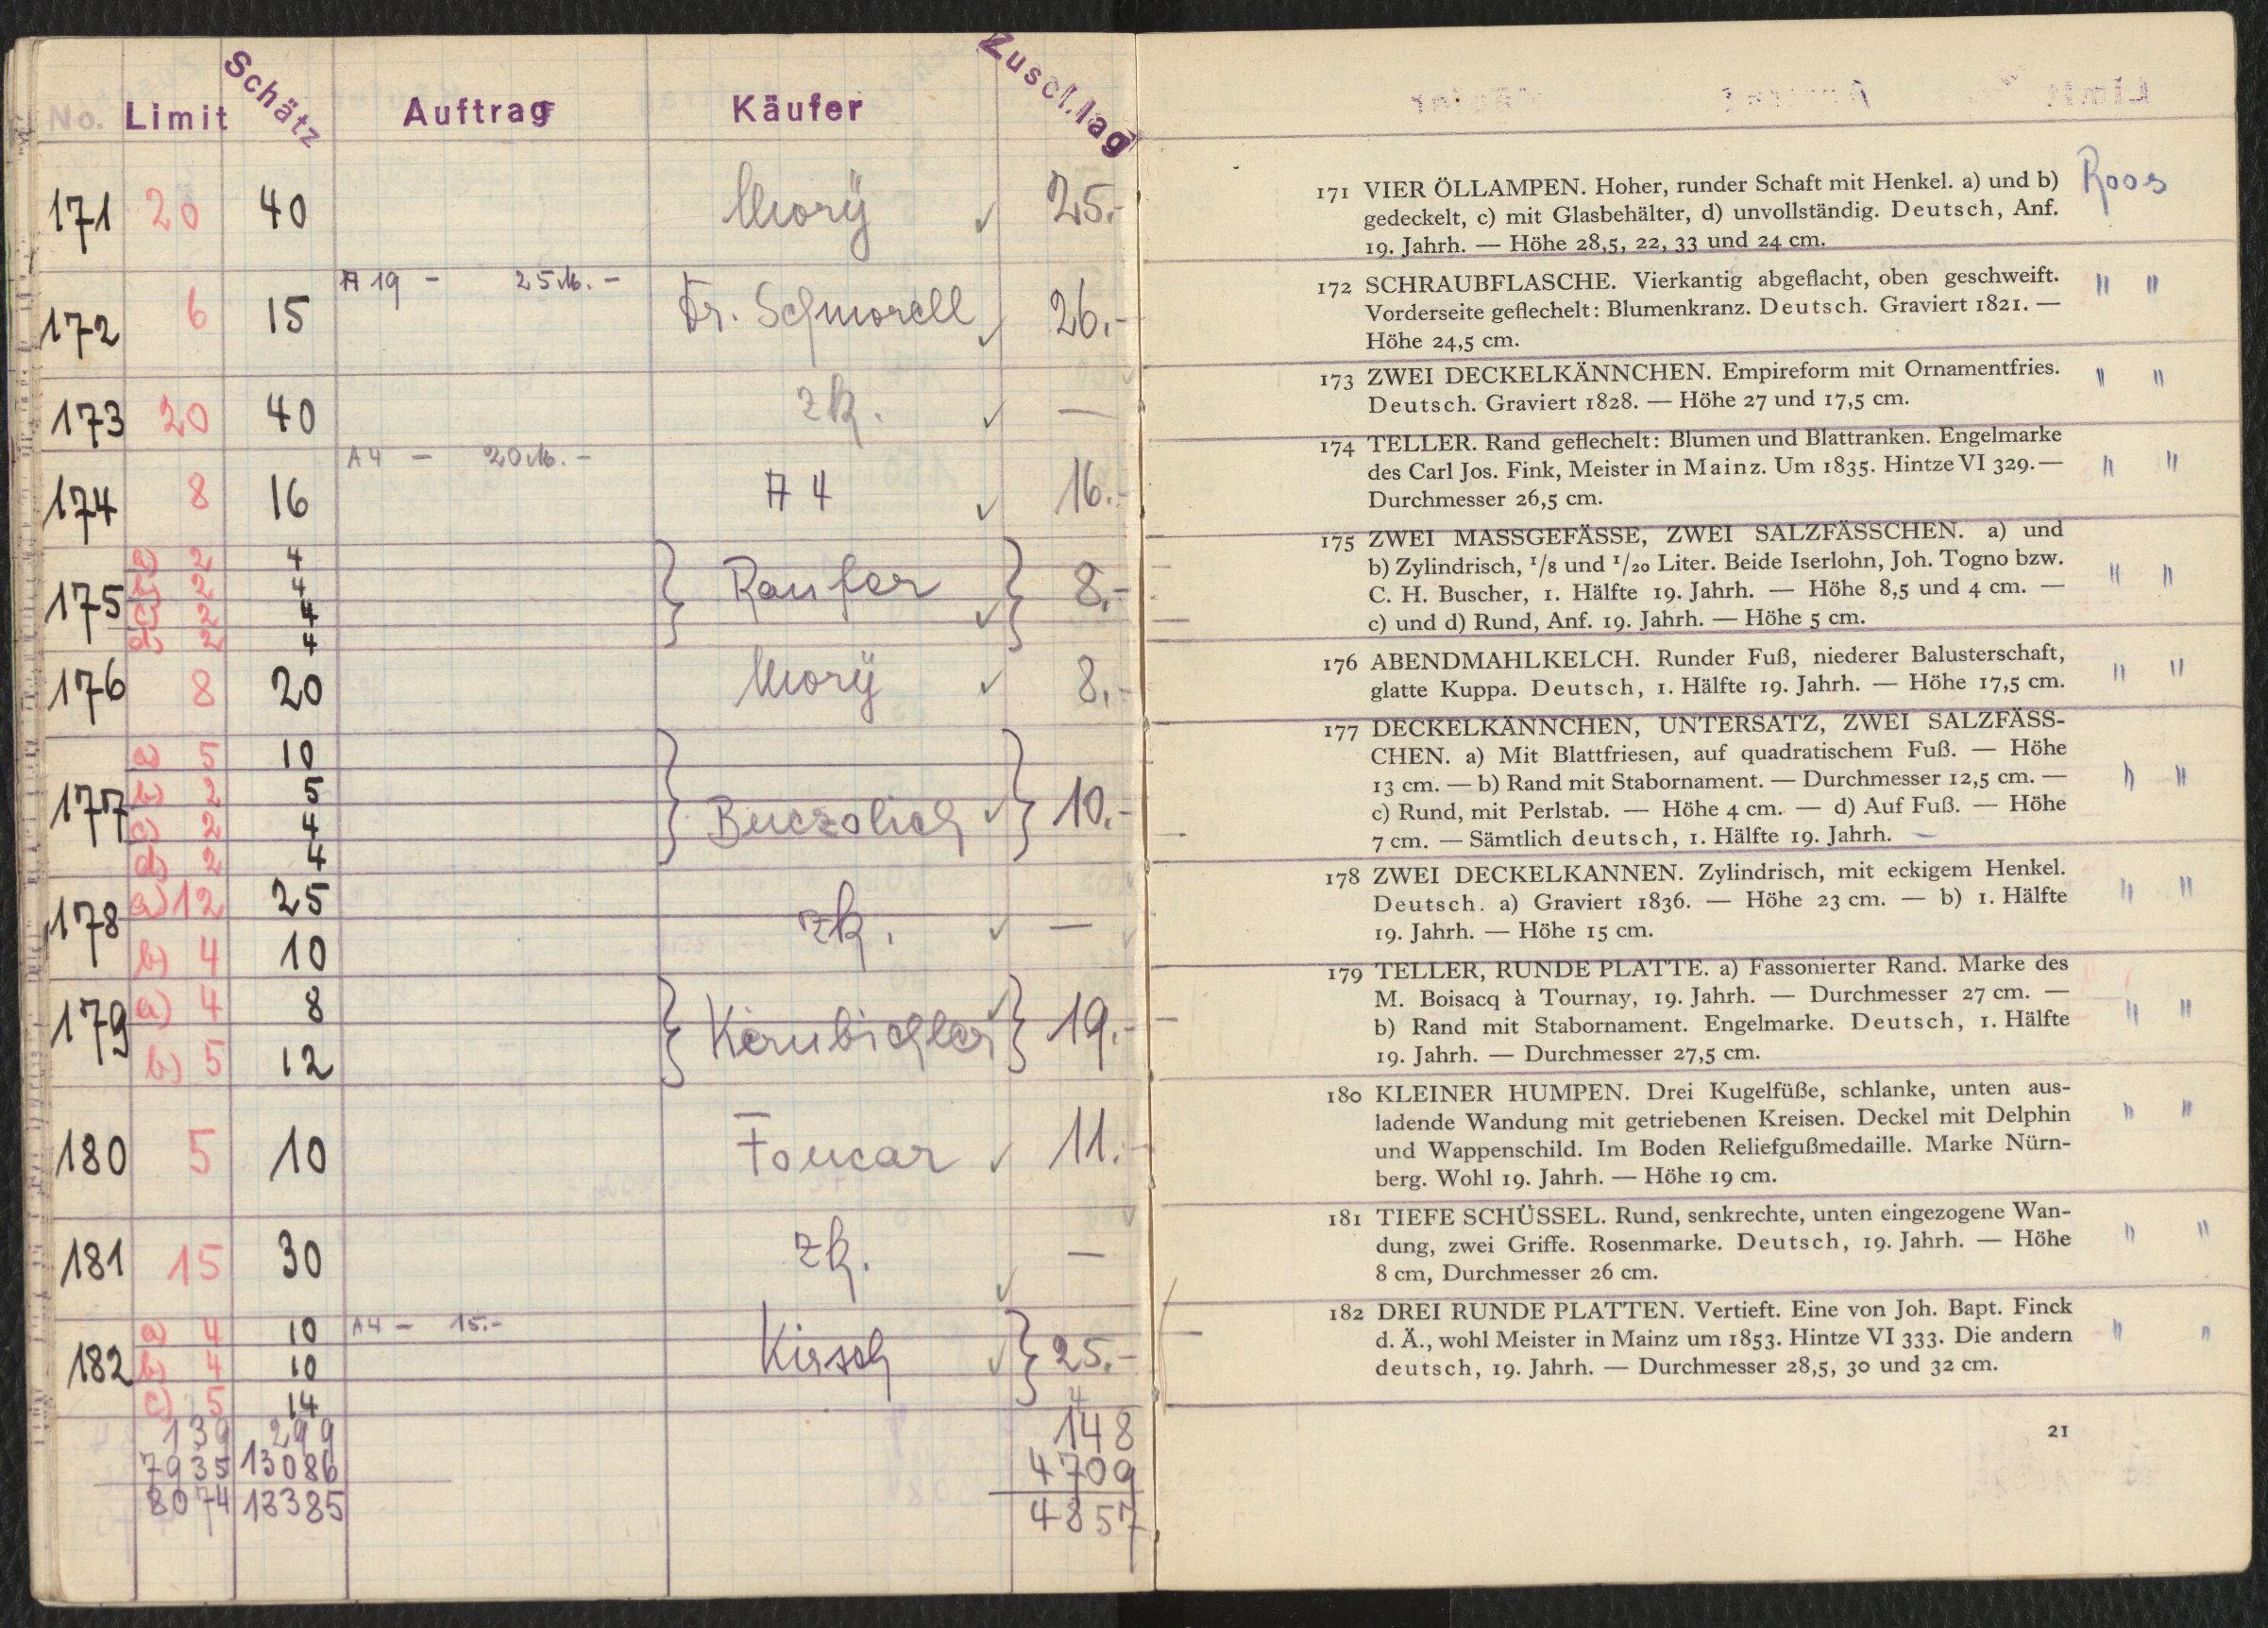 No. Limit Schätz Auftrag Käufer Zuschlag
171 20 40 Morÿ ✓ 25.-
A 19 - 25 M. -
172 6 15 Dr. Schmorell ✓ 26.-
173 20 40 zk. ✓ —
A 4 - 20 M. -
174 8 16 A 4 ✓ 16.-
175 a) 2 4
b) 2 4 Raufer 8.-
c) 2 4 ✓
d) 2 4
176 8 20 Morÿ ✓ 8.-
177 a) 5 10
b) 2 5
c) 2 4 Buczolich ✓ 10.-
d) 2 4
178 a) 12 25
zk. ✓ —
b) 4 10
179 a) 4 8
Kernbichler ✓ 19.-
b) 5 12
180 5 10 Foucar ✓ 11.-
181 15 30 zk. ✓ —
182 a) 4 10 A4 - 15.-
b) 4 10 Kirsch ✓ 25.-
c) 5 14
139 299 148
7935 13086 4709
8074 13385 4857
171 VIER ÖLLAMPEN. Hoher, runder Schaft mit Henkel. a) und b) Roos
gedeckelt, c) mit Glasbehälter, d) unvollständig. Deutsch, Anf.
19. Jahrh. — Höhe 28,5, 22, 33 und 24 cm.
172 SCHRAUBFLASCHE. Vierkantig abgeflacht, oben geschweift. " "
Vorderseite geflechelt: Blumenkranz. Deutsch. Graviert 1821. —
Höhe 24,5 cm.
173 ZWEI DECKELKÄNNCHEN. Empireform mit Ornamentfries. " "
Deutsch. Graviert 1828. — Höhe 27 und 17,5 cm.
174 TELLER. Rand geflechelt: Blumen und Blattranken. Engelmarke
des Carl Jos. Fink, Meister in Mainz. Um 1835. Hintze VI 329. — " "
Durchmesser 26,5 cm.
175 ZWEI MASSGEFÄSSE, ZWEI SALZFÄSSCHEN. a) und
b) Zylindrisch, 1/8 und 1/20 Liter. Beide Iserlohn, Joh. Togno bzw. " "
C. H. Buscher, 1. Hälfte 19. Jahrh. — Höhe 8,5 und 4 cm. —
c) und d) Rund, Anf. 19. Jahrh. — Höhe 5 cm.
176 ABENDMAHLKELCH. Runder Fuß, niederer Balusterschaft, " "
glatte Kuppa. Deutsch, 1. Hälfte 19. Jahrh. — Höhe 17,5 cm.
177 DECKELKÄNNCHEN, UNTERSATZ, ZWEI SALZFÄSS-
CHEN. a) Mit Blattfriesen, auf quadratischem Fuß. — Höhe
13 cm. — b) Rand mit Stabornament. — Durchmesser 12,5 cm. — " "
c) Rund, mit Perlstab. — Höhe 4 cm. — d) Auf Fuß. — Höhe
7 cm. — Sämtlich deutsch, 1. Hälfte 19. Jahrh.
178 ZWEI DECKELKANNEN. Zylindrisch, mit eckigem Henkel. " "
Deutsch. a) Graviert 1836. — Höhe 23 cm. — b) 1. Hälfte
19. Jahrh. — Höhe 15 cm.
179 TELLER, RUNDE PLATTE. a) Fassonierter Rand. Marke des
M. Boisacq à Tournay, 19. Jahrh. — Durchmesser 27 cm. — " "
b) Rand mit Stabornament. Engelmarke. Deutsch, 1. Hälfte
19. Jahrh. — Durchmesser 27,5 cm.
180 KLEINER HUMPEN. Drei Kugelfüße, schlanke, unten aus- " "
ladende Wandung mit getriebenen Kreisen. Deckel mit Delphin
und Wappenschild. Im Boden Reliefgußmedaille. Marke Nürn-
berg. Wohl 19. Jahrh. — Höhe 19 cm.
181 TIEFE SCHÜSSEL. Rund, senkrechte, unten eingezogene Wan- " "
dung, zwei Griffe. Rosenmarke. Deutsch, 19. Jahrh. — Höhe
8 cm, Durchmesser 26 cm.
182 DREI RUNDE PLATTEN. Vertieft. Eine von Joh. Bapt. Finck
d. Ä., wohl Meister in Mainz um 1853. Hintze VI 333. Die andern " "
deutsch, 19. Jahrh. — Durchmesser 28,5, 30 und 32 cm.
21